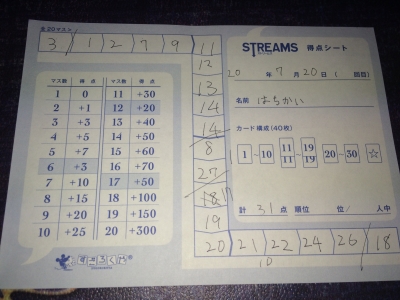 全20マス
3 1 2 7 9 11
12
13
14
14
8
27
18
19
20 21 22 24 26 18
10
マス数 得点 マス数 得点
1 0 11 +30
2 +1 12 +20
3 +3 13 +40
4 +5 14 +50
5 +7 15 +60
6 +3 16 +70
7 +10 17 +50
8 +15 18 +100
9 +20 19 +150
10 +25 20 +300
すごろくや
STREAMS 得点シート
20 年 7 月 20 日 ( 回目)
名前 はちかい
カード構成(40枚)
1 ~ 10 11 11 19 19 20 ~ 30 ☆
計 31 点 順位 位/ 人中